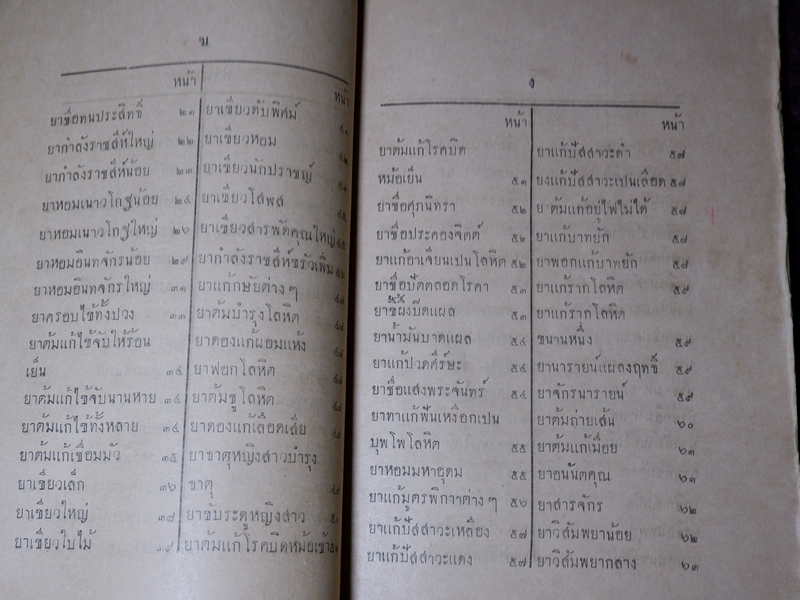 ฆ
หน้า
ยาชื่อทนประสิทธิ์ ๒๑
ยากำลังราชสีห์ใหญ่ ๒๒
ยากำลังราชสีห์น้อย ๒๓
ยาหอมเนาวโกฐน้อย ๒๔
ยาหอมเนาวโกฐใหญ่ ๒๖
ยาหอมอินทจักรน้อย ๒๙
ยาหอมอินทจักรใหญ่ ๓๑
ยาครอบไข้ทั้งปวง ๓๓
ยาต้มแก้ไข้จับให้ร้อน
เย็น ๓๔
ยาต้มแก้ไข้จับนานหาย ๓๔
ยาต้มแก้ไข้ทั้งหลาย ๓๔
ยาต้มแก้เชื่อมมัว ๓๕
ยาเขียวเล็ก ๓๖
ยาเขียวใหญ่ ๓๗
ยาเขียวใบไม้ ๓๙
หน้า
ยาเขียวดับพิศม์ ๔๑
ยาเขียวหอม ๔๒
ยาเขียวนักปราชญ์
ยาเขียวโสฬส
ยาเขียวสารพัดคุณใหญ่ ๔๕
ยากำลังราชสีห์ขรัวเพิ่ม ๔๖
ยาแก้กษัยต่าง ๆ
ยาต้มบำรุงโลหิต
ยาดองแก้ผอมแห้ง
ยาฟอกโลหิต
ยาต้มชูโลหิต
ยาดองแก้เลือดเสีย
ยาธาตุหญิงสาวบำรุง
ธาตุ
ยาขับระดูหญิงสาว
ยาต้มแก้โรคบิดหม้อเช้า
ง
หน้า
ยาต้มแก้โรคบิด
หม้อเย็น ๕๑
ยาชื่อศุภนิทรา ๕๒
ยาชื่อประคองจิตต์ ๕๒
ยาแก้อาเจียนเปนโลหิต ๕๒
ยาชื่อปัตตลอดโรคา ๕๓
ยาขี้ผึ้งปิดแผล ๕๓
ยาน้ำมันบาดแผล ๕๔
ยาแก้ปวดศีร์ษะ ๕๔
ยาชื่อแสงพระจันทร์ ๕๔
ยาทาแก้ฟันเหงือกเปน
บุพโพโลหิต ๕๕
ยาหอมมหาอุดม ๕๕
ยาแก้มูตรพิการต่าง ๆ ๕๖
ยาแก้ปัสสาวะเหลือง ๕๗
ยาแก้ปัสสาวะแดง ๕๗
หน้า
ยาแก้ปัสสาวะดำ ๕๗
ยงแก้ปัสสาวะเปนเลือด ๕๗
ยาต้มแก้อยู่ไฟไม่ได้ ๕๗
ยาแก้บาทยัก ๕๘
ยาพอกแก้บาทยัก ๕๘
ยาแก้รากโลหิต ๕๙
ยาแก้รากโลหิต
ขนานหนึ่ง ๕๙
ยานารายน์แผลงฤทธิ์ ๕๙
ยาจักรนารายน์ ๕๙
ยาต้มถ่ายเส้น ๖๐
ยาต้มแก้เมื่อย ๖๑
ยาอนันตคุณ ๖๑
ยาสารจักร ๖๒
ยาวิสัมพยาน้อย ๖๒
ยาวิสัมพยากลาง ๖๓